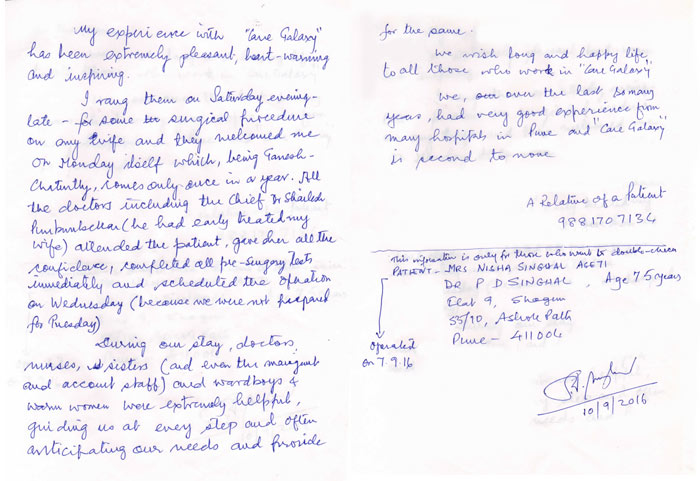 My experience with "Care Galaxy"
has been extremely pleasant, heart-warming
and inspiring.
I rang them on Saturday evening-
late - for some surgical procedure
on my wife and they welcomed me
on Monday itself which, being Ganesh-
Chaturthy, comes only once in a year. All
the doctors including the Chief Dr Shailesh
Puntambekar (he had early treated my
wife) attended the patient, gave her all the
confidence, completed all pre-surgery tests
immediately and scheduled the operation
on Wednesday (because we were not prepared
for Tuesday)
During our stay, doctors,
nurses, sisters (and even the managment
and account staff) and wardboys &
women were extremely helpful,
guiding us at every step and often
anticipating our needs and provide
for the same.
We wish long and happy life
to all those who work in "Care Galaxy".
We, over the last so many
years, had very good experience from
many hospitals in Pune and "Care Galaxy"
is second to none
A Relative of a Patient
9881707134
This information is only for those who want to double-check
PATIENT - MRS NISHA SINGHAL
Dr P D SINGHAL, Age 75 years
Flat 9,
55/90, Ashok Path
Pune - 411004
Operated
on 7.9.16
10/9/2016